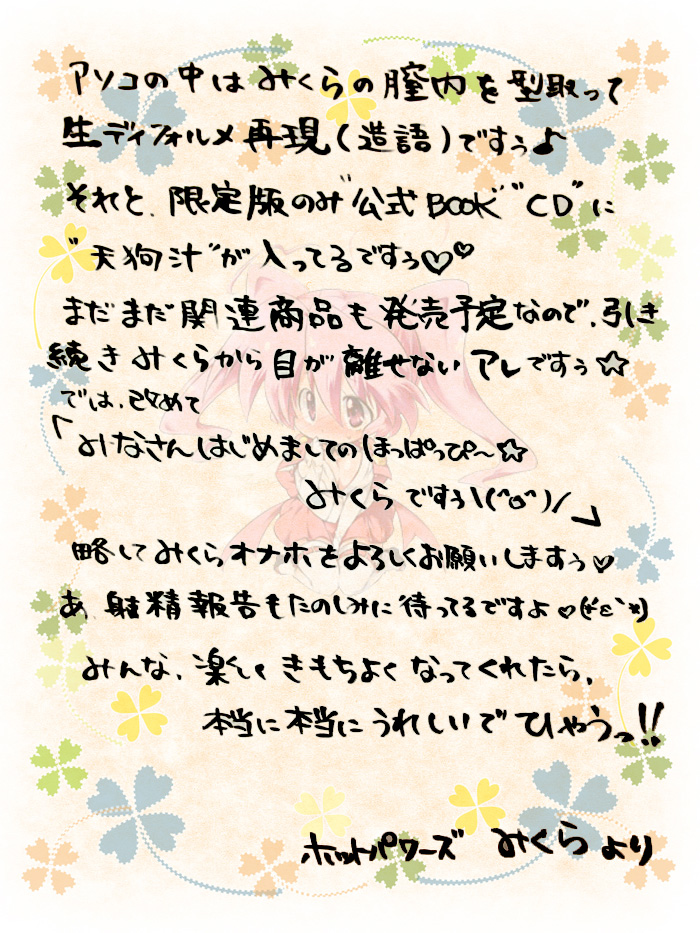 アソコの中はみくらの膣内を型取って
生ディフォルメ再現(造語)ですぅ♪
それと、限定版のみ"公式BOOK" "CD"に
"天狗汁"が入ってるですぅ♡♡
まだまだ関連商品も発売予定なので、引き
続きみくらから目が離せないアレですぅ☆
では、改めて
「みなさんはじめましてのほっぱっぴ〜☆
みくらですぅ\(^o^)/」
略してみくらオナホをよろしくお願いしますぅ♡
あ、射精報告もたのしみに待ってるですよ♡(*´ε`*)
みんな、楽しくきもちよくなってくれたら、
本当に本当にうれしいでひゃうっ!!
ホットパワーズ みくらより